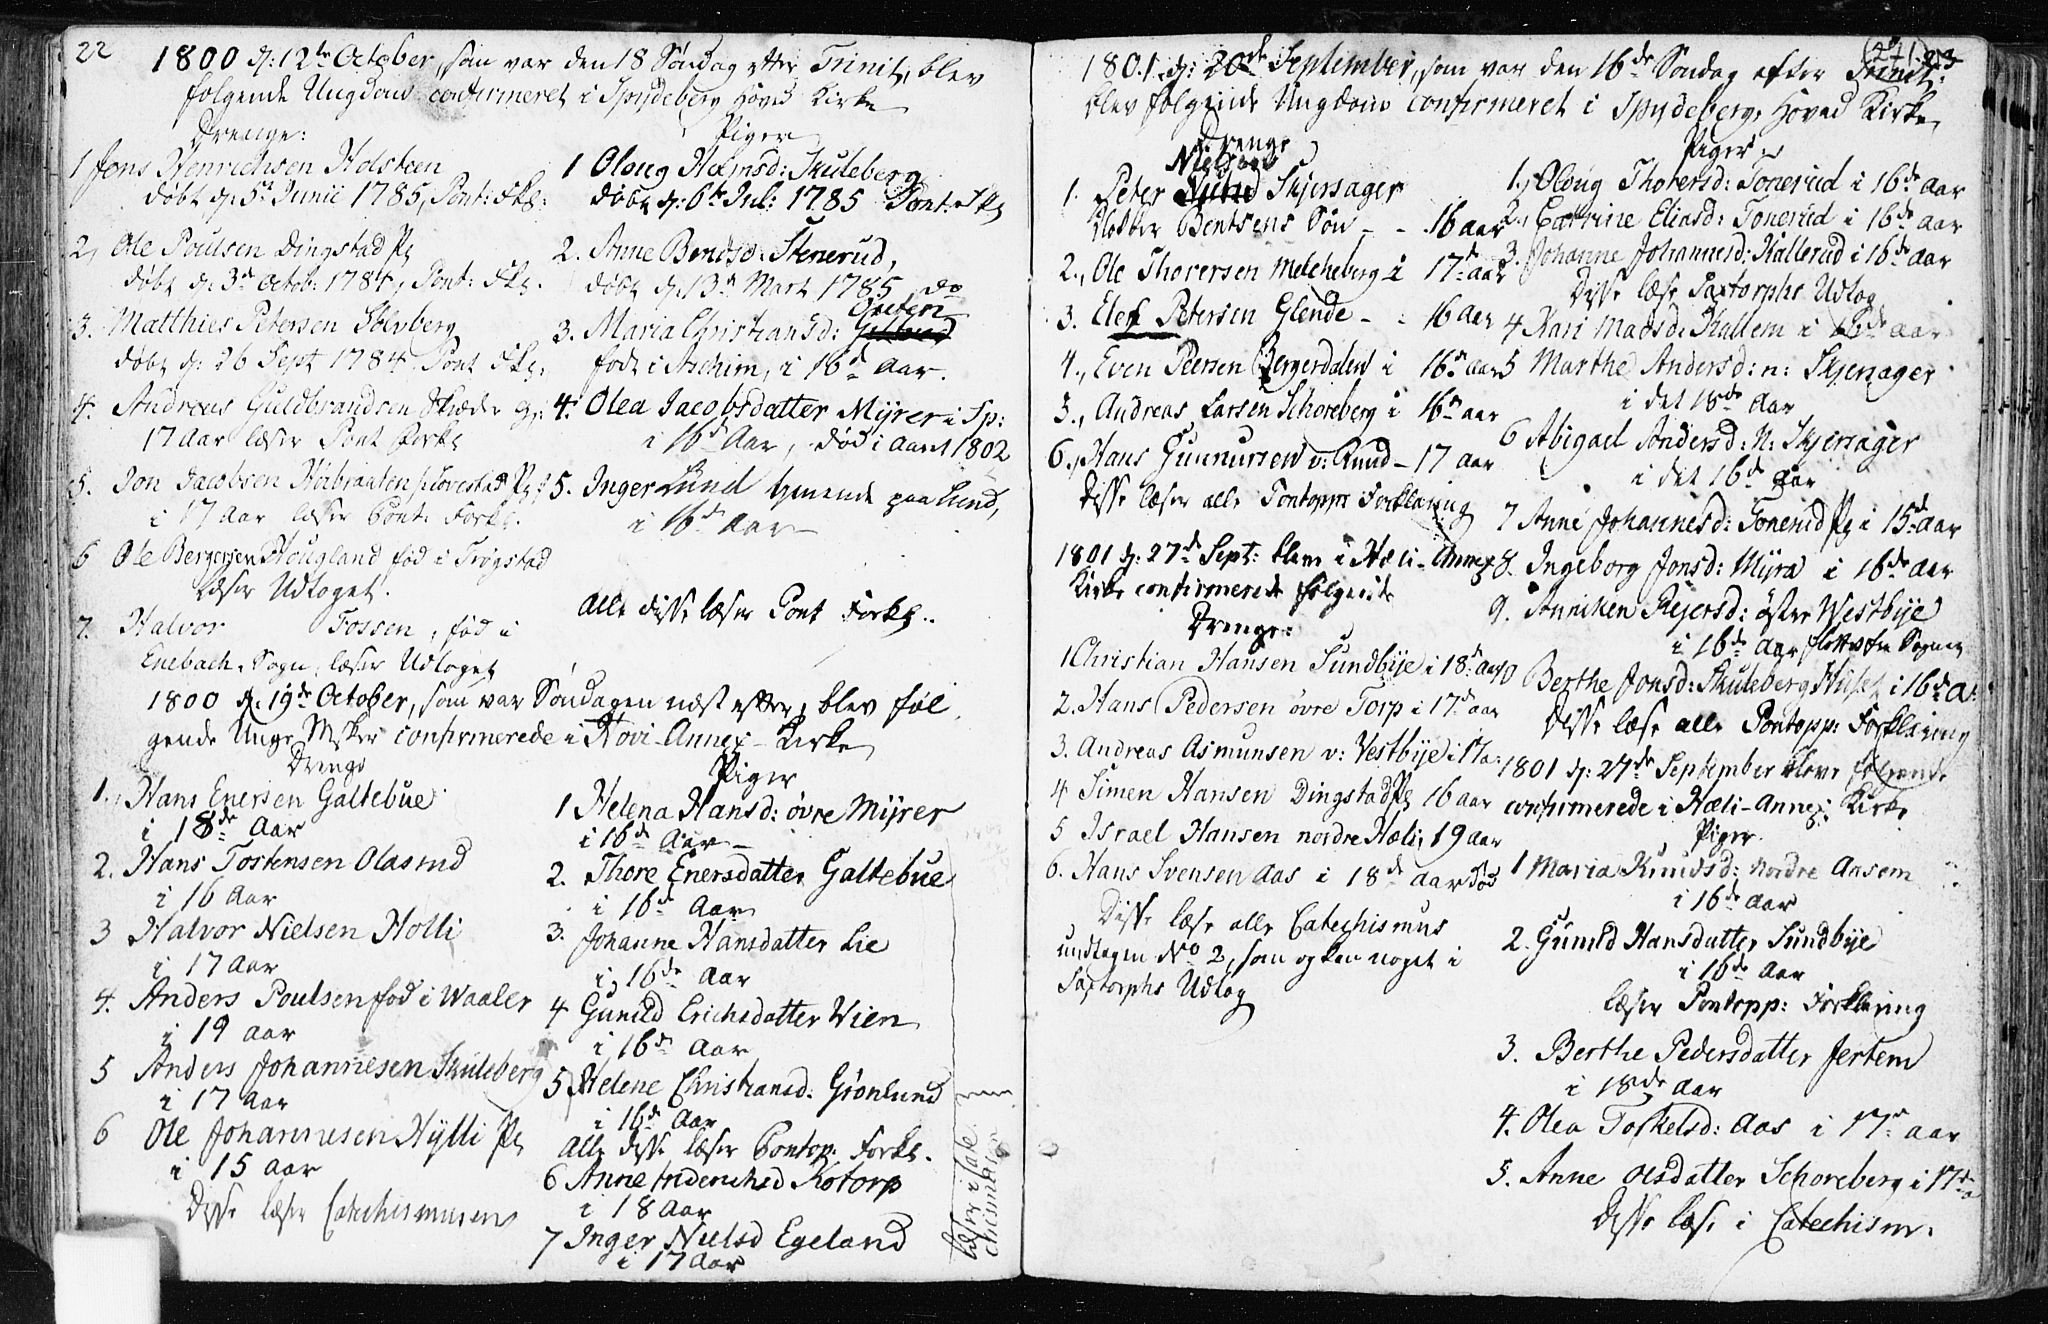 22
1800 d: 12te October, som var den 18 Søndag efter Trinit, blev
følgende Ungdom confirmeret i Spydeberg Hoved Kirke
Drenge:
1 Jens Henrichsen Holsteen
døbt d: 5t Junii 1785, Pont: Fkl:
2, Ole Poulsen Dingstad Pl
døbt d: 3d Octob: 1784, Pont: Fkl.
3. Matthies Petersen Solvberg
døbt d: 26 Sept 1784 Pont Fkl:
4. Andreas Guldbrandsen
17 Aar læser Pont Forkl
5. Jon Jacobsen
i 17 Aar læser Pont: Forkl.
6 Ole Bergersen Hougland fød i Trøgstad
læser Udtoget.
7. Halvor Fossen, fød i
Enebach Sogn, læser Udtoget
Piger
1 Oloug Holmsd: Skuleberg
døbt d: 6te Jul: 1785 Pont: Fkl
2. Anne Bendsd: Stenerud,
døbt d: 13d Mart 1785 do
3. Maria Christiansd:
født i Aschim, i 16d Aar.
4. Olea Jacobsdatter Myrer i Sp:
i 16d Aar, død i Aaret 1802
5. Inger Lund tienende paa Lund,
i 16d Aar
Alle disse læser Pont Forkl.
1800 d: 19de October, som var Søndagen næst efter, blev føl
gende Unge Msker confirmerede i Hovi-Annex-Kirke
Drenge
1. Hans Enersen Galtebue
i 18de Aar
2. Hans Tostensen Olasrud
i 16 Aar
3 Halvor Nielsen Holli
i 17 Aar
4. Anders Poulsen fød i Waaler
i 19 aar
5 Anders Johannesen Skuleberg
i 17 Aar
6 Ole Johannesen Hylli Pl
i 15 aar
Disse læser Catechismusen
Piger
1 Helena Hansd: øvre Myrer
i 16d Aar
2. Thore Enersdatter Galtebue
i 16d Aar
3. Johanne Hansdatter Lie
i 16de Aar
4 Gunild Erichsdatter Wien
i 16de Aar
5 Helene Christiansd: Grønlund
i 16de Aar
Alle disse læser Pontop: Forkl.
6 Anne Kotorp
i 18 Aar
7 Inger Nielsd Egeland
i 17 Aar
læser i Cate
chismusen
(241) 23
1801 d: 20de September, som var den 16de Søndag efter Trinit:
blev følgende Ungdom confirmeret i Spydeberg Hoved Kirke
Drenge
Nielsen
1. Peter Skjersager
Klokker Bentsens Søn - - 16 aar
2., Ole Thorersen Melcheberg i 17d aar
3. Elef Petersen Glende - - 16 Aar
4., Even Peersen Bergerdalen i 16d aar
3., Andreas Larsen Schoreberg i 16d aar
6., Hans Gunnursen v: Rund - 17 aar
Disse læser alle Pontopps Forklaring
1801 d: 27de Sept: blev i Hæli-Annex
Kirke confirmerede følgende
Drenge:
1 Christian Hansen Sundbije i 18d Aar
2. Hans Pedersen øvre Torp i 17d aar
3. Andreas Asmunsen v: Vestbije i 17 a:
4 Simen Hansen Dingstad Pl 16 aar
5 Israel Hansen nordre Hæli, 19 aar
6. Hans Svensen Aas i 18de aar død
Disse læse alle Catechismus
undtagen No 2, som og kan noget i
Saxtorphs Udtog
Piger
1., Oloug Thorersd: Tonerud i 16de Aar
2., Catrine Eliasd: Tonerud i 16de aar
3. Johanne Johannesd: Kallerud i 16de aar
Disse læse Saxtorphs Udtog
4 Kari Madsd: Kallem i aar
5 Marthe Andersd: n: Skjersager
i det 18de Aar
6 Abigael Andersd: N: Skjersager
i det 16de Aar
7 Anne Johannesd: Tonerud Pl i 15d aar
8. Ingeborg Jonsd: Myra i 16de Aar
9. Anniken Rejersd: øster Westbije
i 16de Aar fløttet fra Sognet
10 Berthe Jonsd: Skuleberg i 16de A:
Disse læse alle Pontopp: Forklaring
1801 d: 27de September bleve følgende
confirmerede i Hæli-Annex: Kirke
Piger
1 Maria Knudsd: Nordre Aasem
i 16de Aar
2. Gunild Hansdatter Sundbije
i 16de Aar
læser Pontopp: Forklaring
3. Berthe Pedersdatter Jertem
i 18de Aar
4. Olea Torkelsd: Aas i 17d aar
5. Anne Olsdatter Schoreberg i 17d a
Disse læse i Catechism: